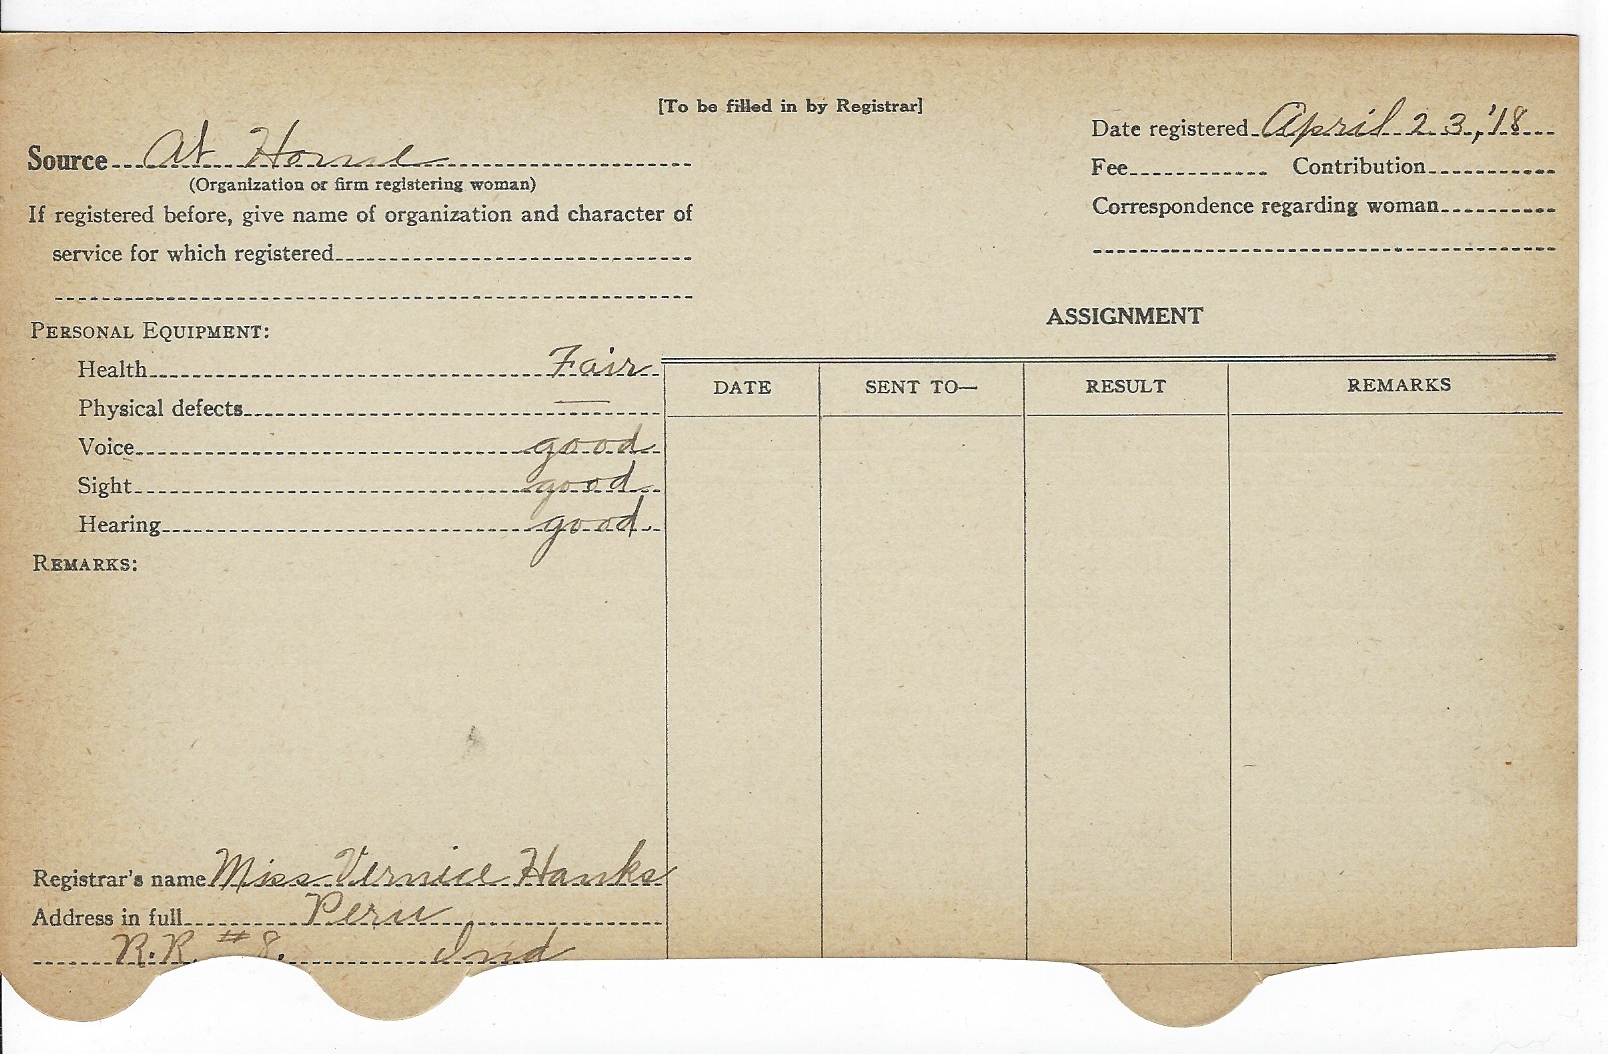 [To be filled in by Registrar]
Source At Home
(Organization or firm registering woman)
If registered before, give name of organization and character of
service for which registered
Date registered April 23,'18
Fee Contribution
Correspondence regarding woman
PERSONAL EQUIPMENT:
Health Fair
Physical defects —
Voice good
Sight good
Hearing good
REMARKS:
ASSIGNMENT
DATE SENT TO— RESULT REMARKS
Registrar's name Miss Vernice Hanks
Address in full Peru
R.R. #8. Ind